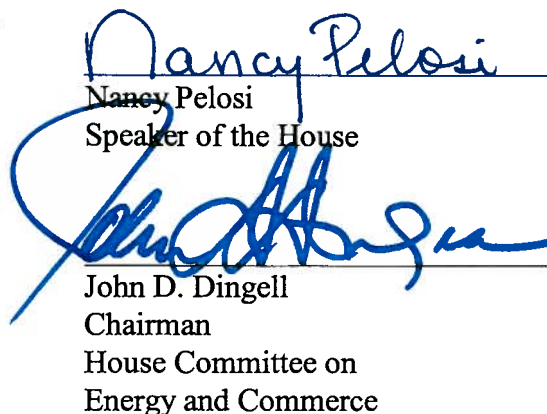 Nancy Pelosi
Nancy Pelosi
Speaker of the House
John D. Dingell
Chairman
House Committee on
Energy and Commerce